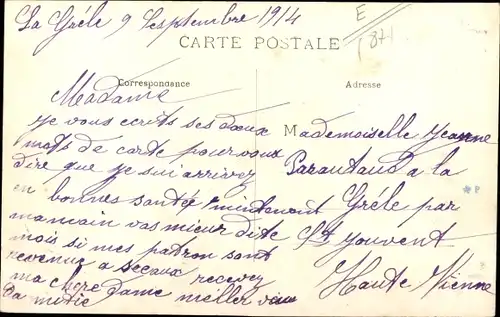 La Grêle 9 Sesptembre 1914
E
CARTE POSTALE
Correspondance
Adresse
Madame
je vous ecrits ses deux
mots de carte pour vous
dire que je sui arrivez
en bonnes santée maintenent
mancain vas mieur dite
mois si mes patron sont
revenue a recevez
ma chere dame meiller
Mademoiselle Jeanne
Parautaud a la
Grêle par
St Jouvent
Haute Vienne